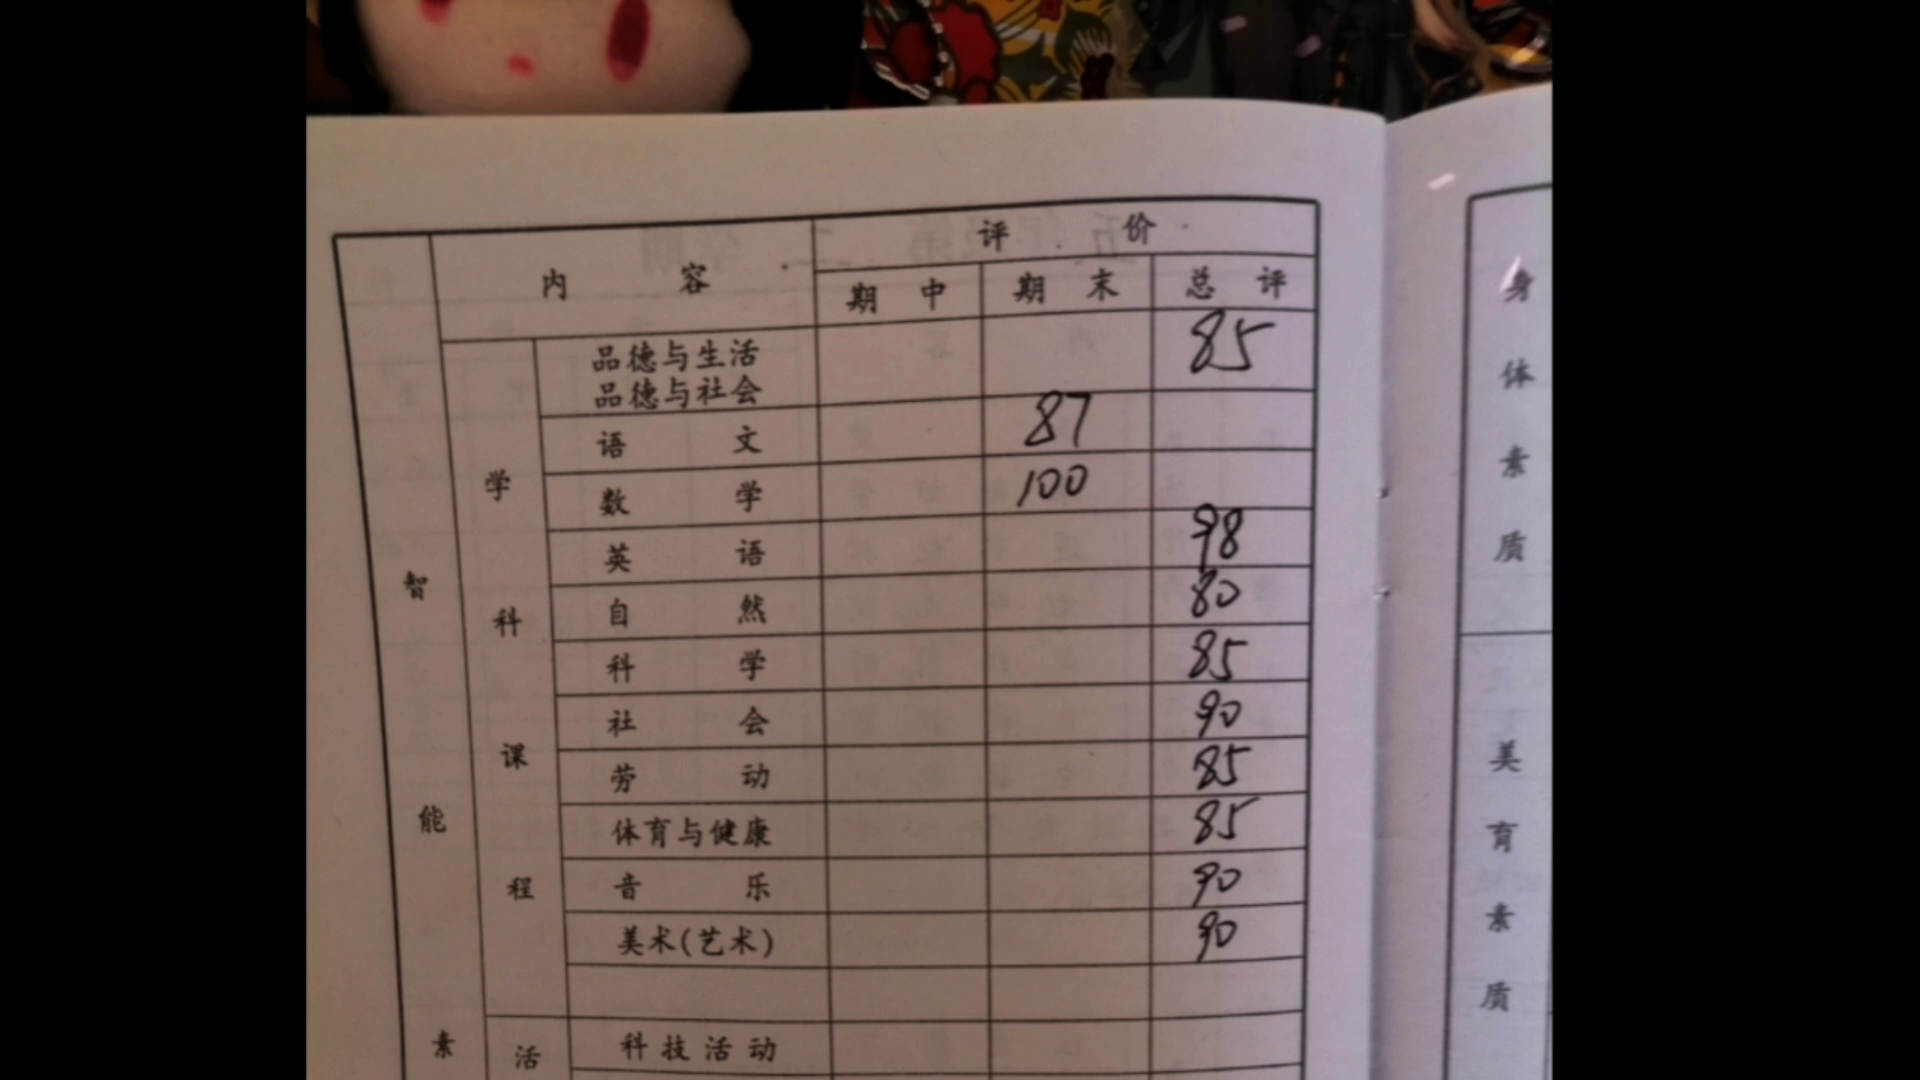 评 价
内 容
期 中 期 末 总 评
品德与生活
品德与社会 85
语 文 87
数 学 100
英 语 98
自 然 80
科 学 85
社 会 90
劳 动 85
体育与健康 85
音 乐 90
美术(艺术) 90
科技活动
智能素
学科课程
活
身体素质
美育素质